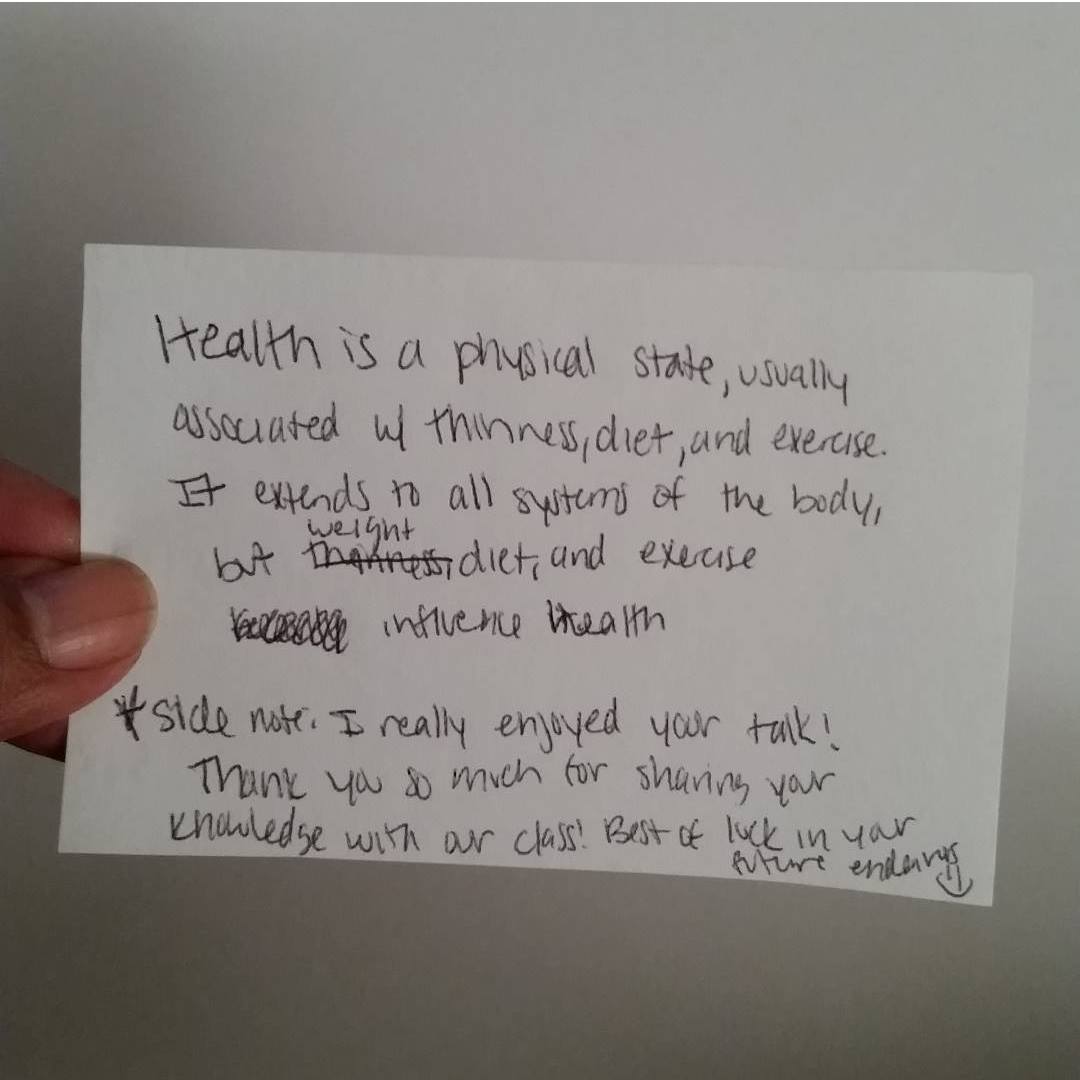 Health is a physical state, usually
associated w/ thinness, diet, and exercise.
It extends to all systems of the body,
weight
but thinness, diet, and exercise
influence Health
* side note: I really enjoyed your talk!
Thank you so much for sharing your
knowledge with our class! Best of luck in your
future